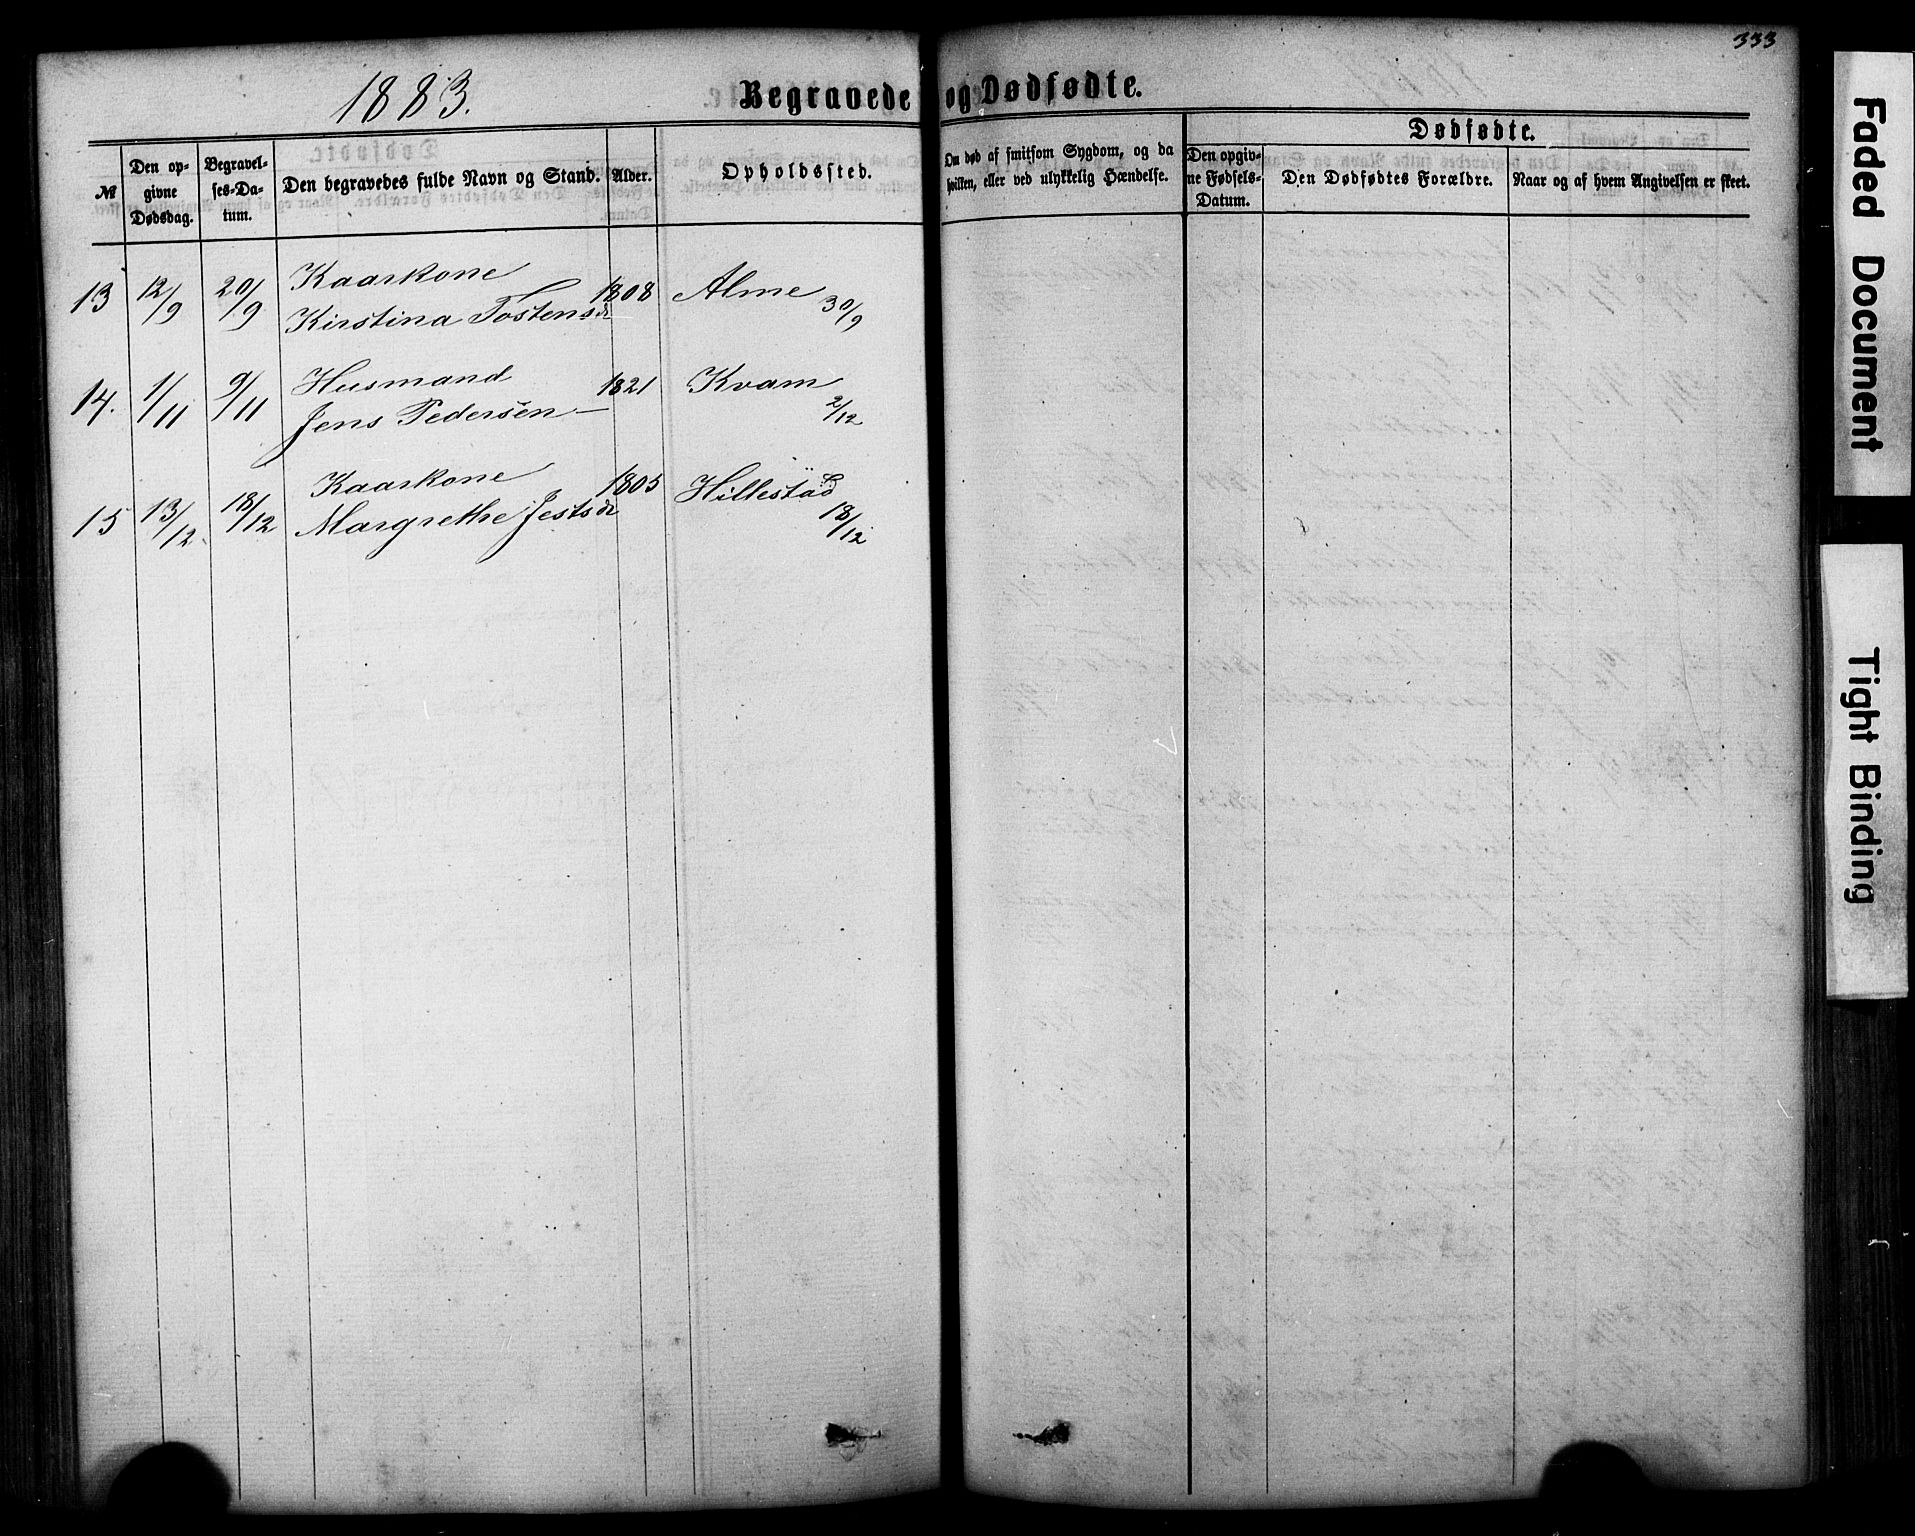 333
1883.
Begravede og Dødfødte.
№
Den op-
givne
Dødsdag.
Begravel-
ses-Da-
tum.
Den begravedes fulde Navn og Stand.
Alder.
Opholdssted.
Om død af smitsom Sygdom, og da
hvilken, eller ved ulykkelig Hændelse.
Dødfødte.
Den opgiv-
ne Fødsels-
Datum.
Den Dødfødtes Forældre.
Naar og af hvem Angivelsen er skeet.
13 12/9 20/9 Kaarkone 1808 Alme
Kirstina Tostensdr 30/9
14. 1/11 9/11 Husmand 1821 Kvam
Jens Pedersen — 2/12
15 13/12 18/12 Kaarkone 1805 Hillestad
Margrethe Jestsdr 18/12
Faded Document
Tight Binding